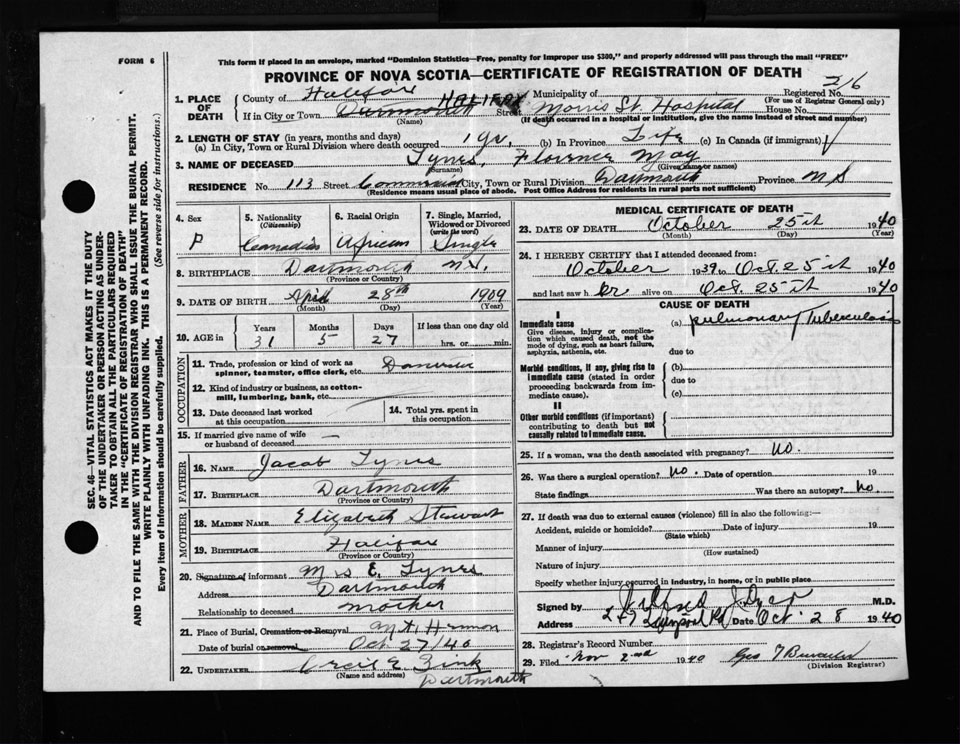 FORM 6
This form if placed in an envelope, marked "Dominion Statistics—Free, penalty for improper use $300," and properly addressed will pass through the mail "FREE"
PROVINCE OF NOVA SCOTIA—CERTIFICATE OF REGISTRATION OF DEATH
Registered No. 216
(For use of Registrar General only)
1. PLACE OF DEATH
County of Halifax Municipality of
If in City or Town Dartmouth HALIFAX Street Morris St. Hospital House No.
(Name) (If death occurred in a hospital or institution, give the name instead of street and number)
2. LENGTH OF STAY (in years, months and days)
(a) In City, Town or Rural Division where death occurred 1 yr. (b) In Province Life (c) In Canada (if immigrant)
3. NAME OF DECEASED Tynes, Florence May
(Surname) (Given name or names)
RESIDENCE No. 113 Street Commercial City, Town or Rural Division Dartmouth Province N S
(Residence means usual place of abode. Post Office Address for residents in rural parts not sufficient)
4. Sex F
5. Nationality (Citizenship) Canadian
6. Racial Origin African
7. Single, Married, Widowed or Divorced (write the word) Single
8. BIRTHPLACE Dartmouth N.S.
(Province or Country)
9. DATE OF BIRTH April 28th 1909
(Month) (Day) (Year)
10. AGE in Years 31 Months 5 Days 27 If less than one day old hrs. or min.
OCCUPATION
11. Trade, profession or kind of work as spinner, teamster, office clerk, etc. Domestic
12. Kind of industry or business, as cotton-mill, lumbering, bank, etc.
13. Date deceased last worked at this occupation
14. Total yrs. spent in this occupation
15. If married give name of wife or husband of deceased —
FATHER
16. NAME Jacob Tynes
17. BIRTHPLACE Dartmouth
(Province or Country)
MOTHER
18. MAIDEN NAME Elizabeth Stewart
19. BIRTHPLACE Halifax
(Province or Country)
20. Signature of informant Mrs E. Tynes
Address Dartmouth
Relationship to deceased mother
21. Place of Burial, Cremation or Removal Mt. Hermon
Date of burial or removal Oct 27/40
22. UNDERTAKER Cecil E. Zink
(Name and address) Dartmouth
MEDICAL CERTIFICATE OF DEATH
23. DATE OF DEATH October 25th 1940
(Month) (Day) (Year)
24. I HEREBY CERTIFY that I attended deceased from:
October 1939 to Oct. 25th 1940
and last saw her alive on Oct. 25th 1940
CAUSE OF DEATH
I
Immediate cause (a) pulmonary Tuberculosis
Give disease, injury or complication which caused death, not the mode of dying, such as heart failure, asphyxia, asthenia, etc.
due to
Morbid conditions, if any, giving rise to immediate cause (stated in order proceeding backwards from immediate cause).
(b)
due to
(c)
II
Other morbid conditions (if important) contributing to death but not causally related to immediate cause.
25. If a woman, was the death associated with pregnancy? No.
26. Was there a surgical operation? No. Date of operation 19
State findings Was there an autopsy? No.
27. If death was due to external causes (violence) fill in also the following:—
Accident, suicide or homicide? Date of injury 19
(State which)
Manner of injury
(How sustained)
Nature of injury
Specify whether injury occurred in industry, in home, or in public place
Signed by M.D.
Address Rd Date Oct. 28 1940
28. Registrar's Record Number
29. Filed Nov 2nd 1940 Geo
(Division Registrar)
SEC. 46—VITAL STATISTICS ACT MAKES IT THE DUTY
OF THE UNDERTAKER OR PERSON ACTING AS UNDER-
TAKER TO OBTAIN ALL THE PARTICULARS REQUIRED
IN THE "CERTIFICATE OF REGISTRATION OF DEATH"
AND TO FILE THE SAME WITH THE DIVISION REGISTRAR WHO SHALL ISSUE THE BURIAL PERMIT.
WRITE PLAINLY WITH UNFADING INK. THIS IS A PERMANENT RECORD.
Every item of information should be carefully supplied. (See reverse side for instructions.)